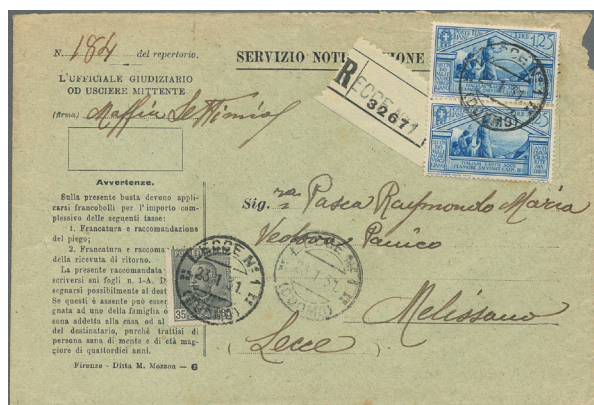 N. 184 del repertorio.
SERVIZIO NOTI
L'UFFICIALE GIUDIZIARIO
OD USCIERE MITTENTE
(firma) Maffia
R
LECCE 1
32671
LIRE 1,25
25
Avvertenze.
Sulla presente busta devono appli-
carsi francobolli per l'importo com-
plessivo delle seguenti tasse:
1. Francatura e raccomandazione
del piego;
2. Francatura e raccoma
della ricevuta di ritorno.
La presente raccomandata
scriversi sui fogli n. 1-A. D
segnarsi possibilmente al dest
Se questi è assente può esser
gnata ad uno della famiglia o
sona addetta alla casa od al
del destinatario, purchè trattisi di
persona sana di mente e di età mag-
giore di quattordici anni.
Firenze - Ditta M. Mozzon — 6
Sig.ra Pasca Raymondo Maria
Vedova Panico
Melissano
( Lecce )
LECCE N° 1
(DUOMO)
LECCE N° 1
23.1.31
(DUOMO)
35